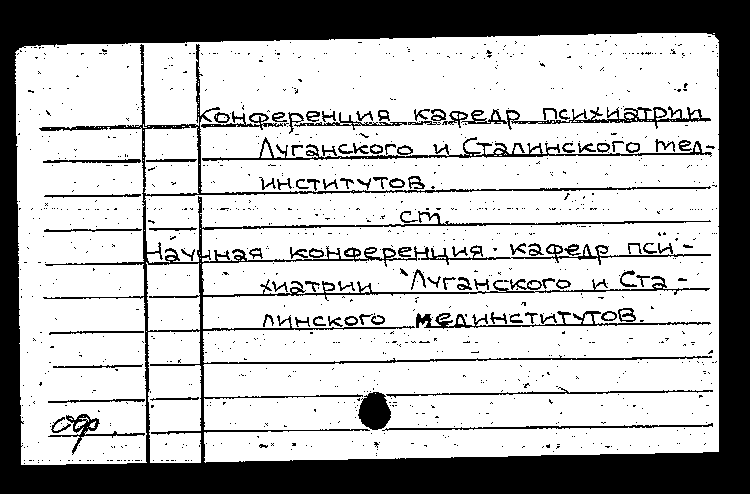 Конференция кафедр психиатрии
Луганского и Сталинского мед-
институтов.
ст.
Научная конференция кафедр пси-
хиатрии Луганского и Ста-
линского мединститутов.